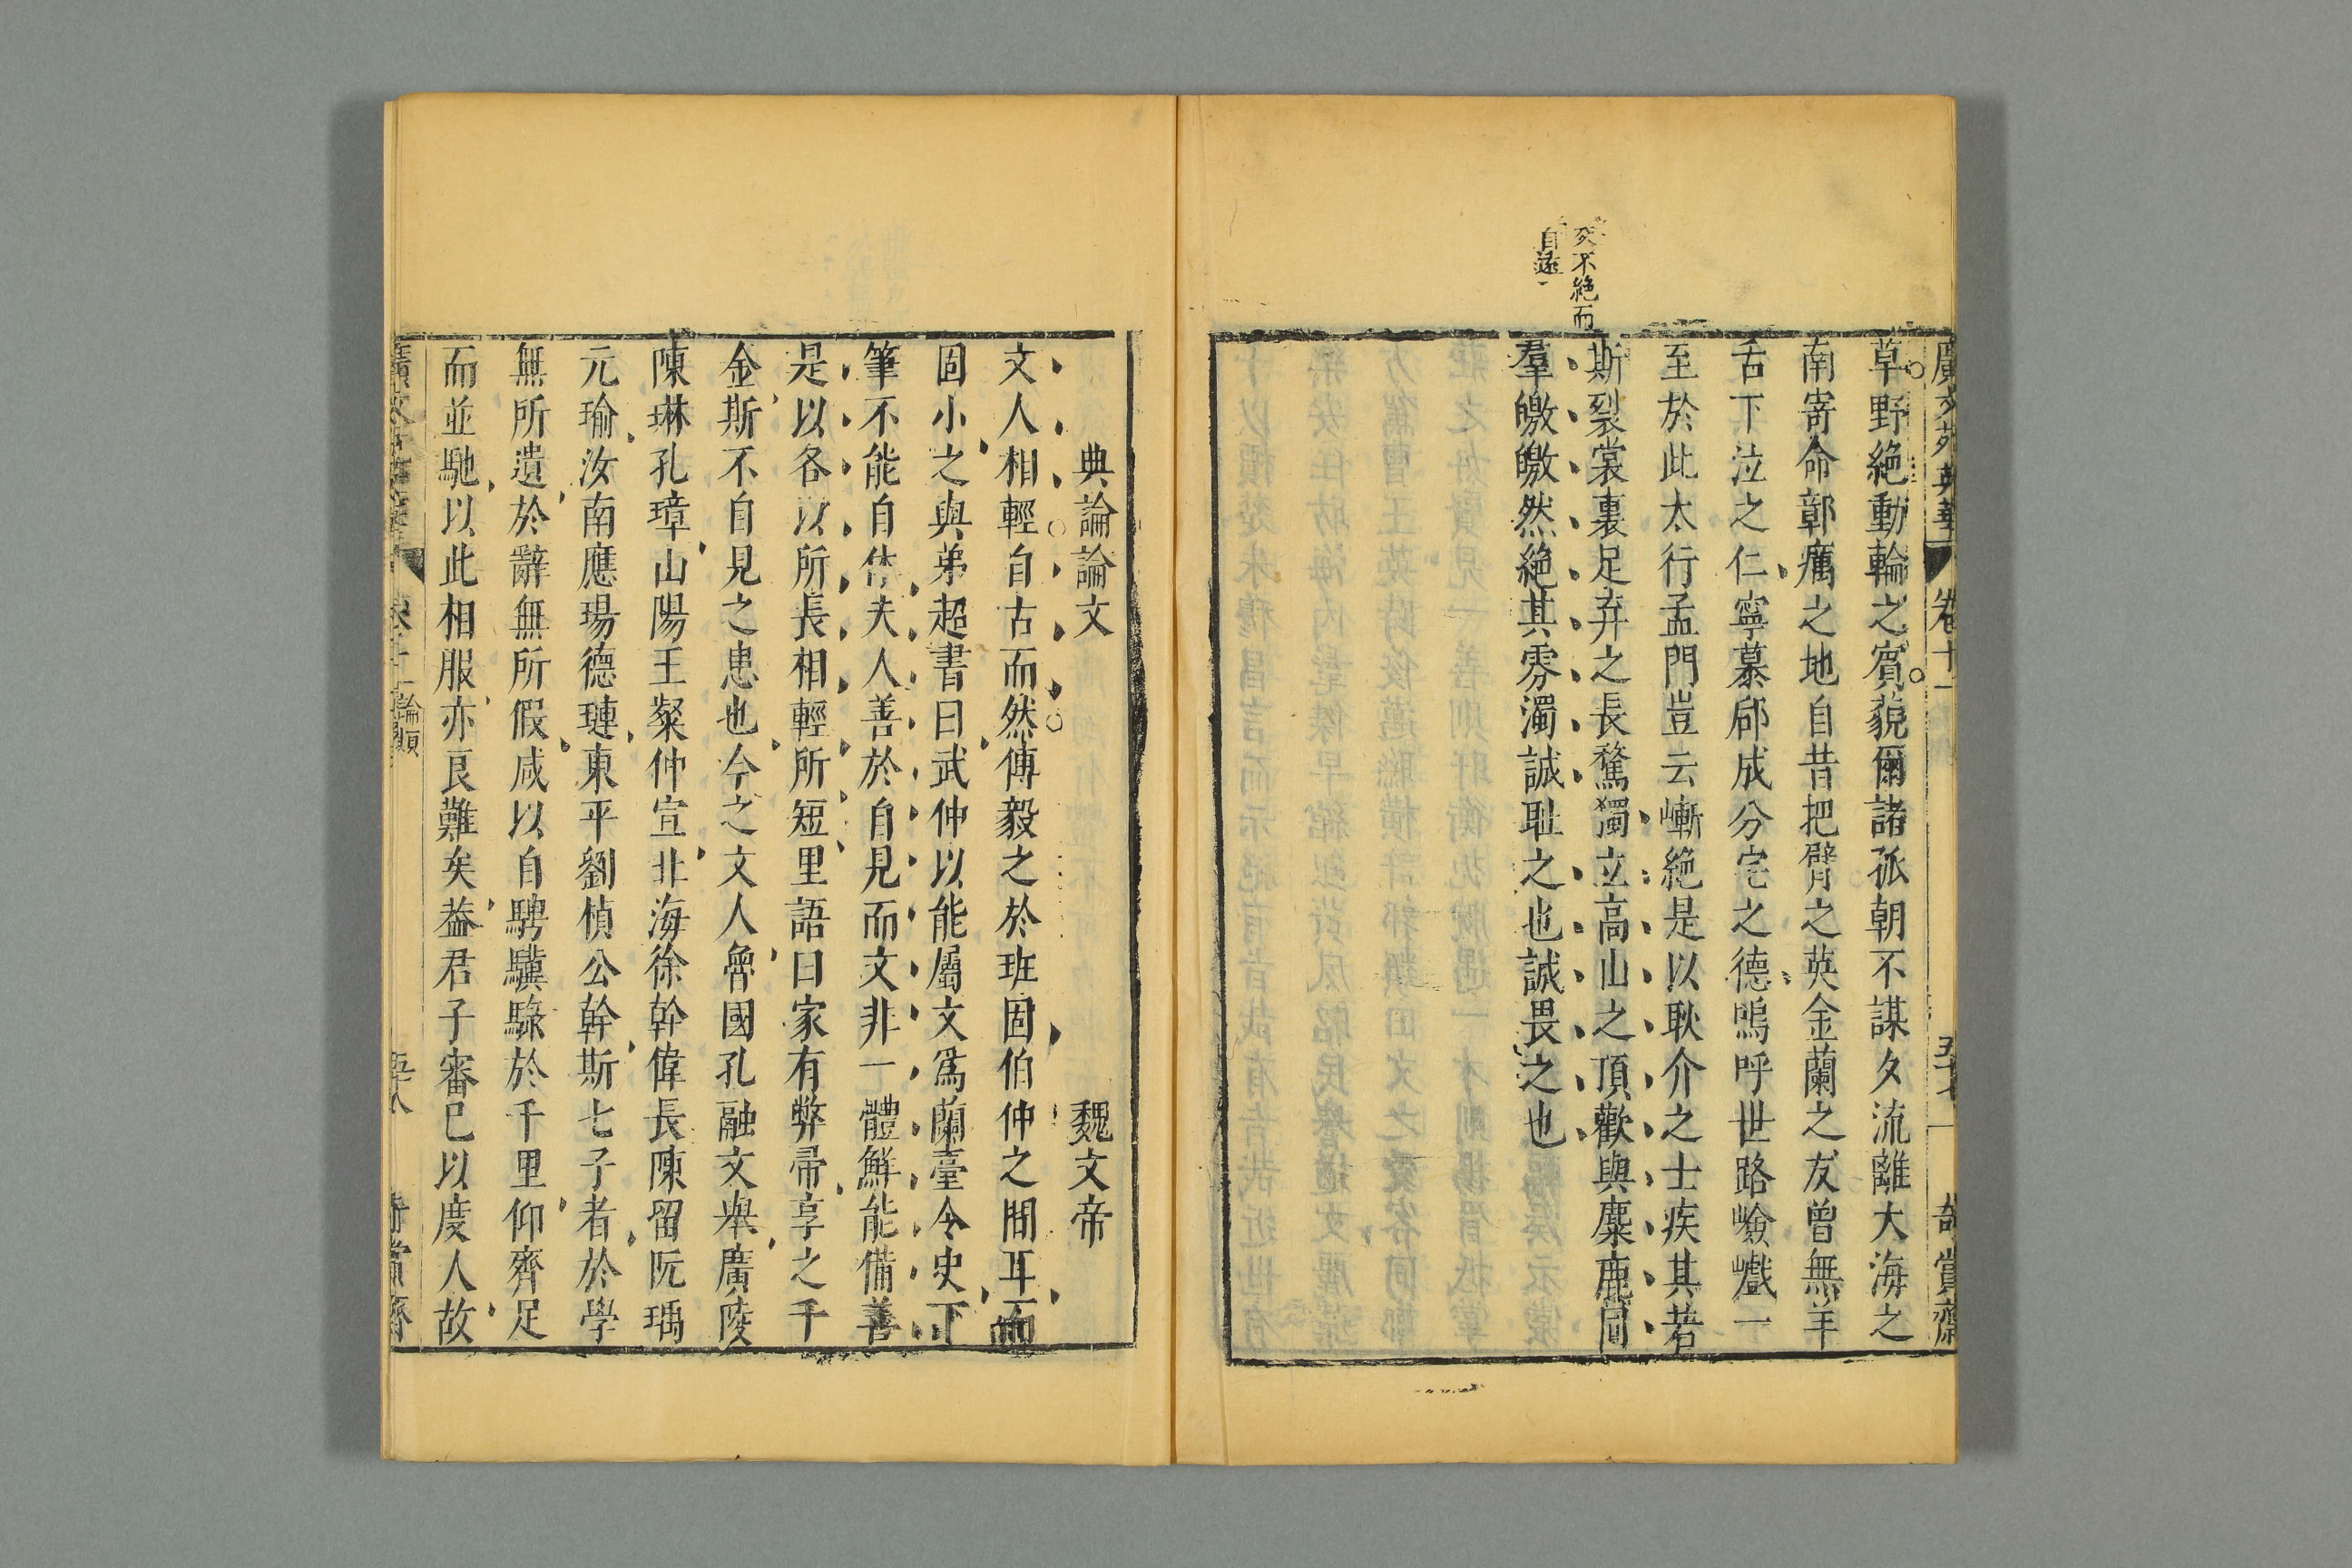 廣文苑英華 卷十一 五十七 奇賞齋
草野絶動輪之賓藐爾諸孤朝不謀夕流離大海之
南寄命鄣癘之地自昔把臂之英金蘭之友曾無羊
舌下泣之仁寧慕郈成分宅之德嗚呼世路嶮巇一
至於此太行孟門豈云嶃絶是以耿介之士疾其若
斯裂裳裹足弃之長騖獨立高山之頂歡與麋鹿同
羣皦皦然絶其雰濁誠耻之也誠畏之也
交不絶而
自遠
典論論文 魏文帝
文人相輕自古而然傅毅之於班固伯仲之間耳而
固小之與弟超書曰武仲以能屬文爲蘭臺令史下
筆不能自休夫人善於自見而文非一體鮮能備善
是以各以所長相輕所短里語曰家有弊帚享之千
金斯不自見之患也今之文人魯國孔融文舉廣陵
陳琳孔璋山陽王粲仲宣北海徐幹偉長陳留阮瑀
元瑜汝南應瑒德璉東平劉楨公幹斯七子者於學
無所遺於辭無所假咸以自騁驥騄於千里仰齊足
而並馳以此相服亦良難矣葢君子審己以度人故
廣文 卷十一 論類 五十八 奇賞齋